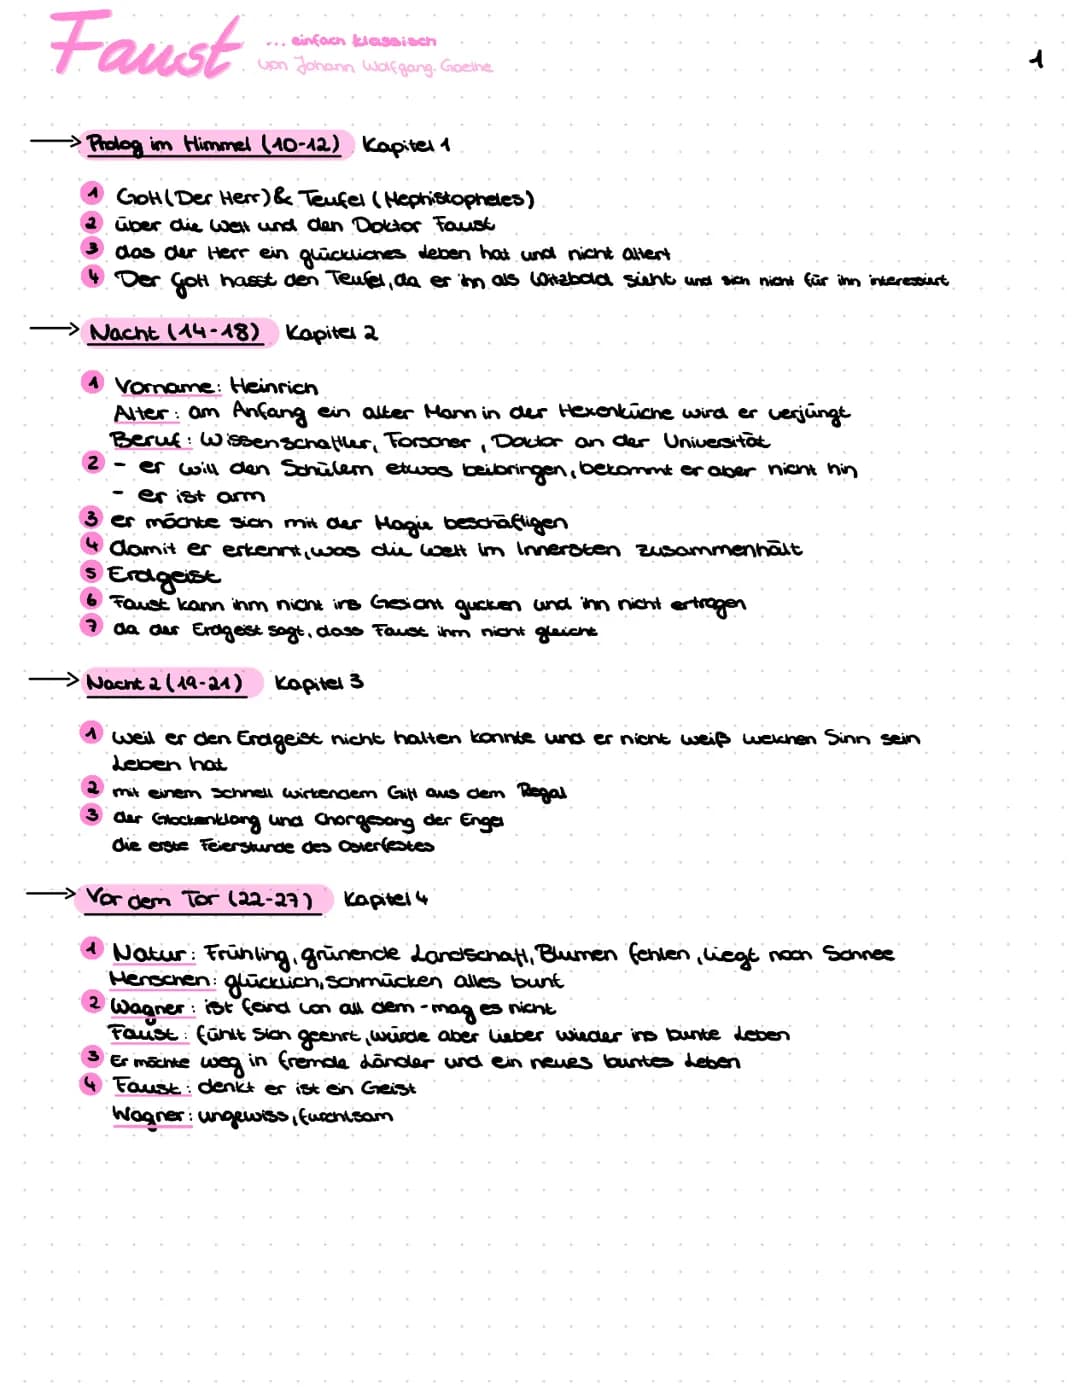 Faust
... einfach klassisch
von Johann Wolfgang Goethe
1
→ Prolog im Himmel (10-12) Kapitel 1
1 Gott (Der Herr) & Teufel (Mephistopheles)
2 über die Welt und den Doktor Faust
3 das der Herr ein glückliches Leben hat und nicht altert
4 Der Gott hasst den Teufel, da er ihn als Witzbold sieht und sich nicht für ihn interessiert
→ Nacht (14-18) Kapitel 2
1 Vorname: Heinrich
Alter: am Anfang ein alter Mann in der Hexenküche wird er verjüngt
Beruf: Wissenschaftler, Forscher, Doktor an der Universität
2 - er will den Schülern etwas beibringen, bekommt er aber nicht hin
- er ist arm
3 er möchte sich mit der Magie beschäftigen
4 damit er erkennt, was die Welt im Innersten zusammenhält
5 Erdgeist
6 Faust kann ihm nicht ins Gesicht gucken und ihn nicht ertragen
7 da der Erdgeist sagt, dass Faust ihm nicht gleicht
→ Nacht 2 (19-21) Kapitel 3
1 weil er den Erdgeist nicht halten konnte und er nicht weiß welchen Sinn sein
Leben hat
2 mit einem schnell wirkendem Gift aus dem Regal
3 der Glockenklang und Chorgesang der Engel
die erste Feierstunde des Osterfestes
→ Vor dem Tor (22-27) Kapitel 4
1 Natur: Frühling, grünende Landschaft, Blumen fehlen, liegt noch Schnee
Menschen: glücklich, schmücken alles bunt
2 Wagner: ist feind von all dem - mag es nicht
Faust: fühlt sich geehrt, würde aber lieber wieder ins bunte Leben
3 Er möchte weg in fremde Länder und ein neues buntes Leben
4 Faust: denkt er ist ein Geist
Wagner: ungewiss, furchtsam